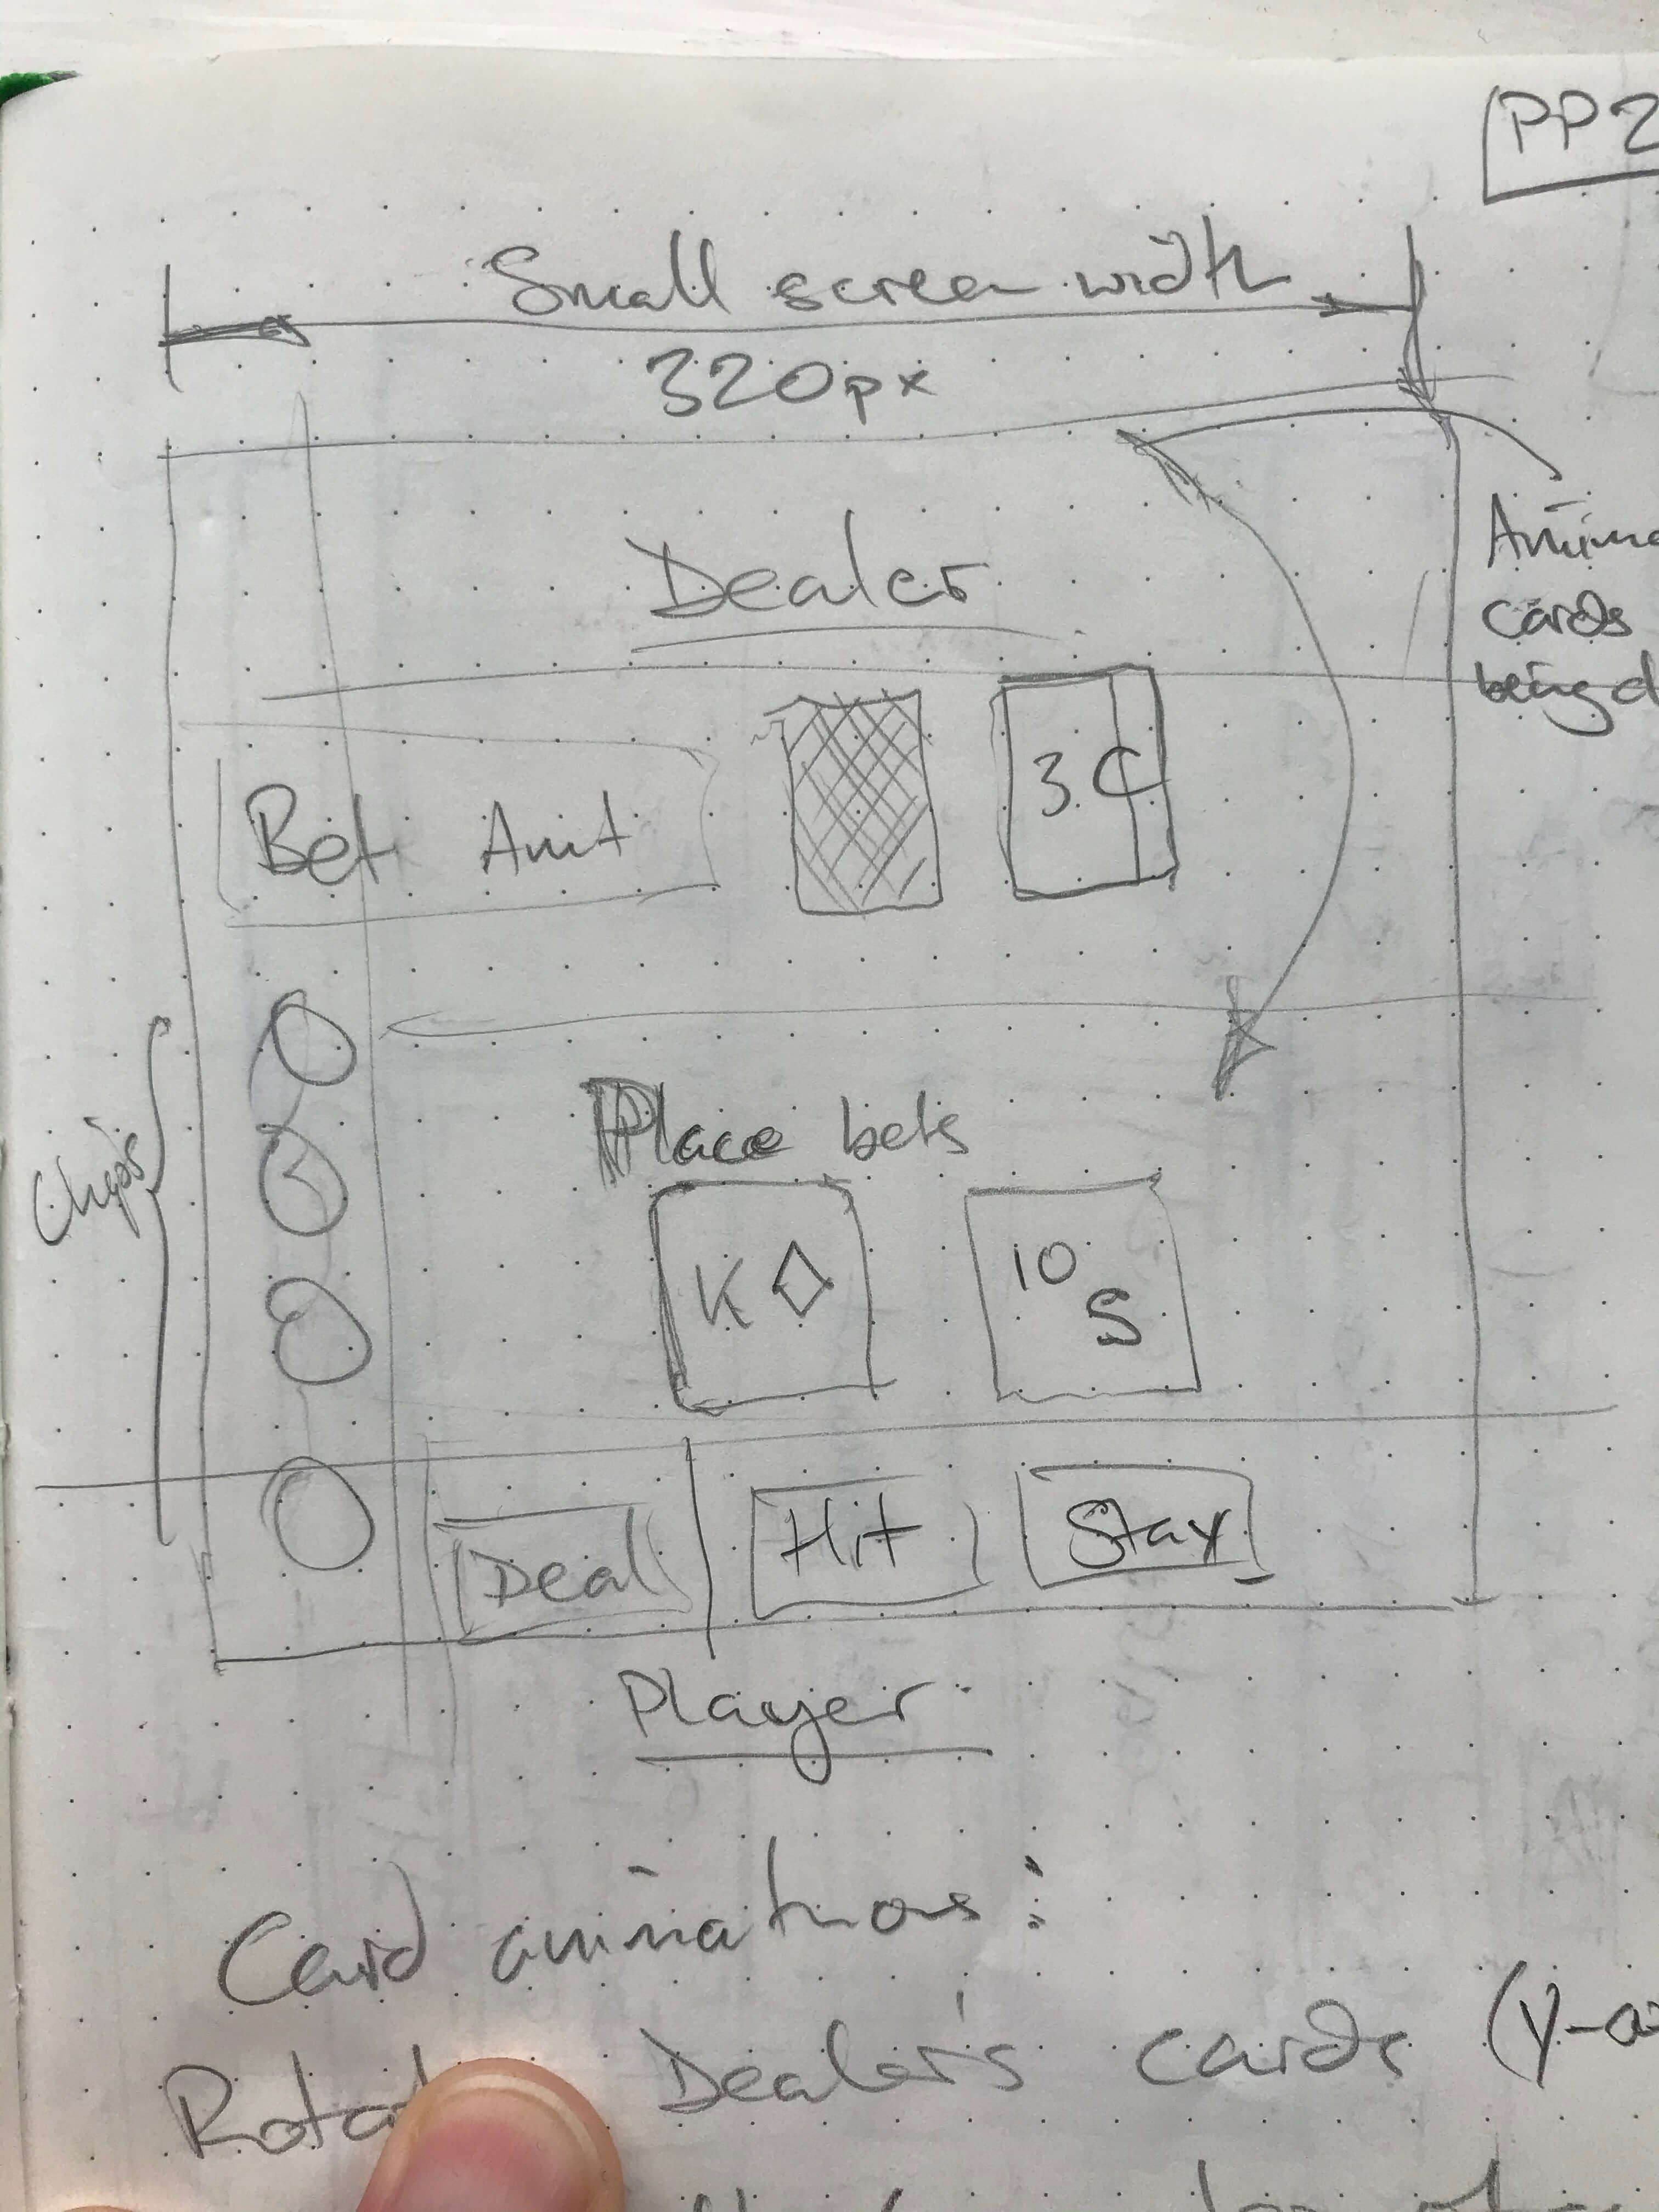 PP2
Small screen width
320px
Dealer
Anim
cards
being d
Bet Amt
3 C
Chips
Place bets
K ◇
10 S
Deal
Hit
Stay
Player
Card animations:
Dealer's cards (y-a